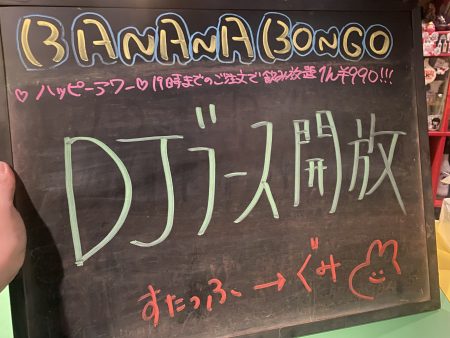 BANANA BONGO
♡ ハッピーアワー♡ 19時までのご注文で飲み放題 1h¥990!!!
DJブース開放
すたっふ→ぐみ